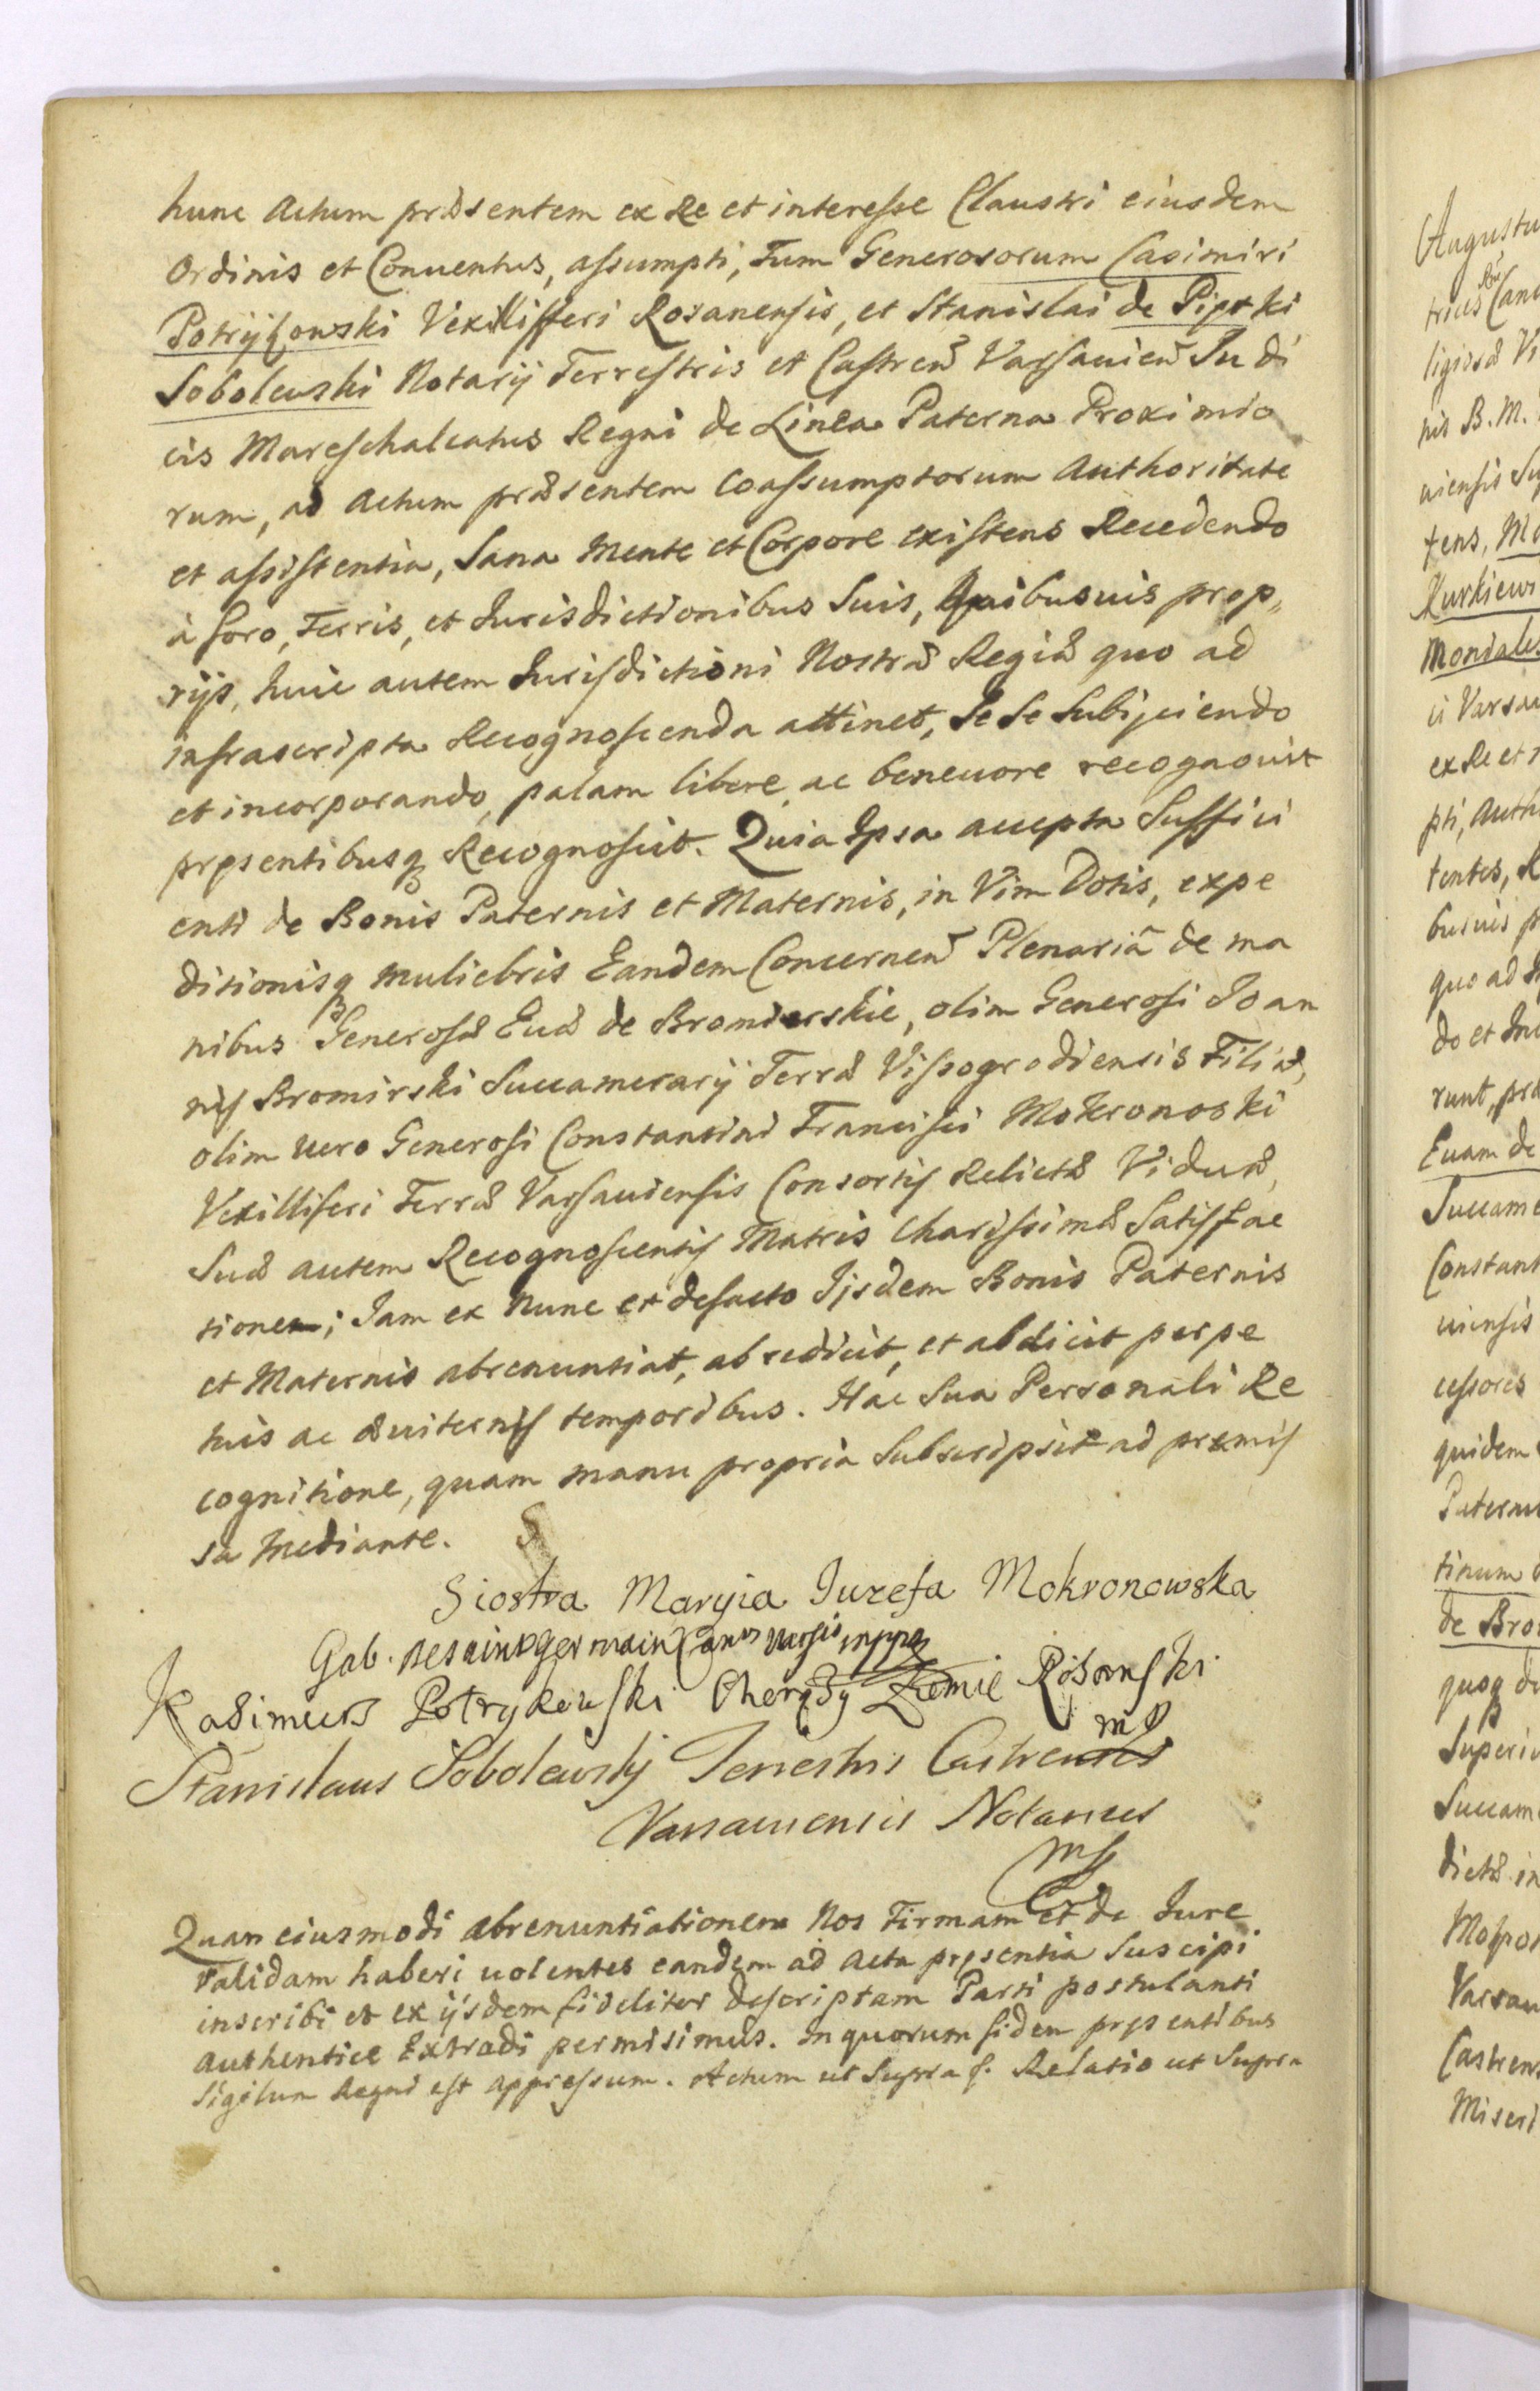 hunc Actum præsentem ex Re et interesse Claustri eiusdem
Ordinis et Conuentus, assumpti, Tum Generosorum Casimiri
Potrykowski Vexilliferi Rosanensis, et Stanislai de Piętki
Sobolewski Notarij Terrestris et Castreñ Varsauieñ Judi
cis Mareschalcatus Regni de Linea Paterna Proximio
rum, ad Actum præsentem coassumptorum Authoritate
et assistentia, Sana Mente et Corpore existens Recedendo
à foro, Terris, et Jurisdictionibus Suis, Quibusuis prop„
rijs, huic autem Jurisdictioni Nostræ Regiæ quo ad
infrascripta Recognoscenda attinet, Se Se Subijciendo
et incorporando, palam libere, ac beneuore recognouit
pręsentibusq Recognoscit. Quia Ipsa accepta Suffici
enti de Bonis Paternis et Maternis, in Vim Dotis, expe
ditionisq muliebris Eandem Concerneñ Plenariã de ma
nibus Generosæ Euæ de Bromirskie, olim Generosi Joan
nis Bromirski Succamerarij Terræ Vissogrodiensis Filiæ,
olim uero Generosi Constantini Francisci Mokronoski
Vexilliferi Terræ Varsauiensis Consortis Relictæ Viduæ,
Suæ autem Recognoscentis Matris Charissimæ Satisfac
tionem; Jam ex Nunc et defacto Ijsdem Bonis Paternis
et Maternis abrenuntiat, abredicit, et abdicit perpe
tuis ac æuiternis temporibus. Hac Sua Personali Re
cognitione, quam manu propria Subscripsit ad pręmis
sa mediante.
Siostra Maryia Iuzefa Mokronowska
Gab. Desaintgermain Canus Varsis mppa
Kasimierz Potrykowski Chorązy Ziemie Rozanski
mp
Stanislaus Sobolewsky Terrestris Castrensis
Varsauiensis Notarius
mp
Quam eiusmodi abrenuntiationem Nos Firmam et de Jure
validam haberi uolentes eandem ad Acta pręsentia Suscipi
inscribi et ex ijsdem fideliter descriptam Parti postulanti
authentice Extradi permisimus. In quorum fidem pręsentibus
Sigilum Regni est appressum. Actum ut Supra f. Relatio ut Supra